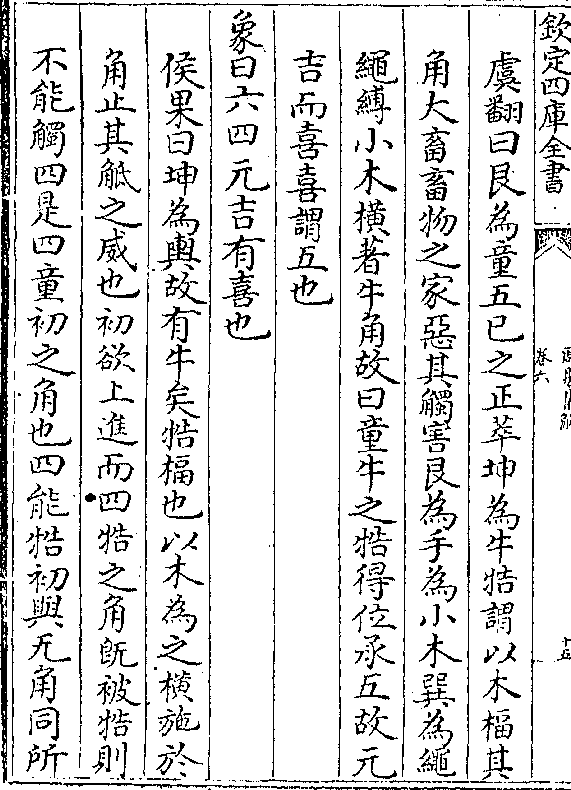 欽定四庫全書
卷六
十五
虞翻曰艮為童五已之正萃坤為牛牿謂以木楅其
角大畜畜物之家惡其觸害艮為手為小木巽為繩
繩縛小木橫著牛角故曰童牛之牿得位承五故元
吉而喜喜謂五也
象曰六四元吉有喜也
侯果曰坤為輿故有牛矣牿楅也以木為之橫施於
角止其觝之威也初欲上進而四牿之角既被牿則
不能觸四是四童初之角也四能牿初與无角同所